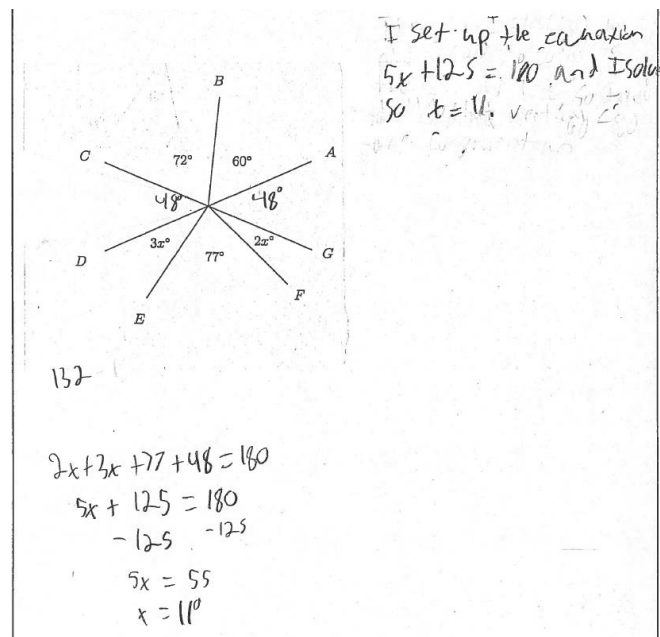 I set up the equation
5x + 125 = 180 and I solve
so x = 11.
B
C
72°
60°
A
48°
48°
3x°
2x°
D
77°
G
F
E
132
2x+3x+77+48=180
5x + 125 = 180
-125 -125
5x = 55
x = 11°